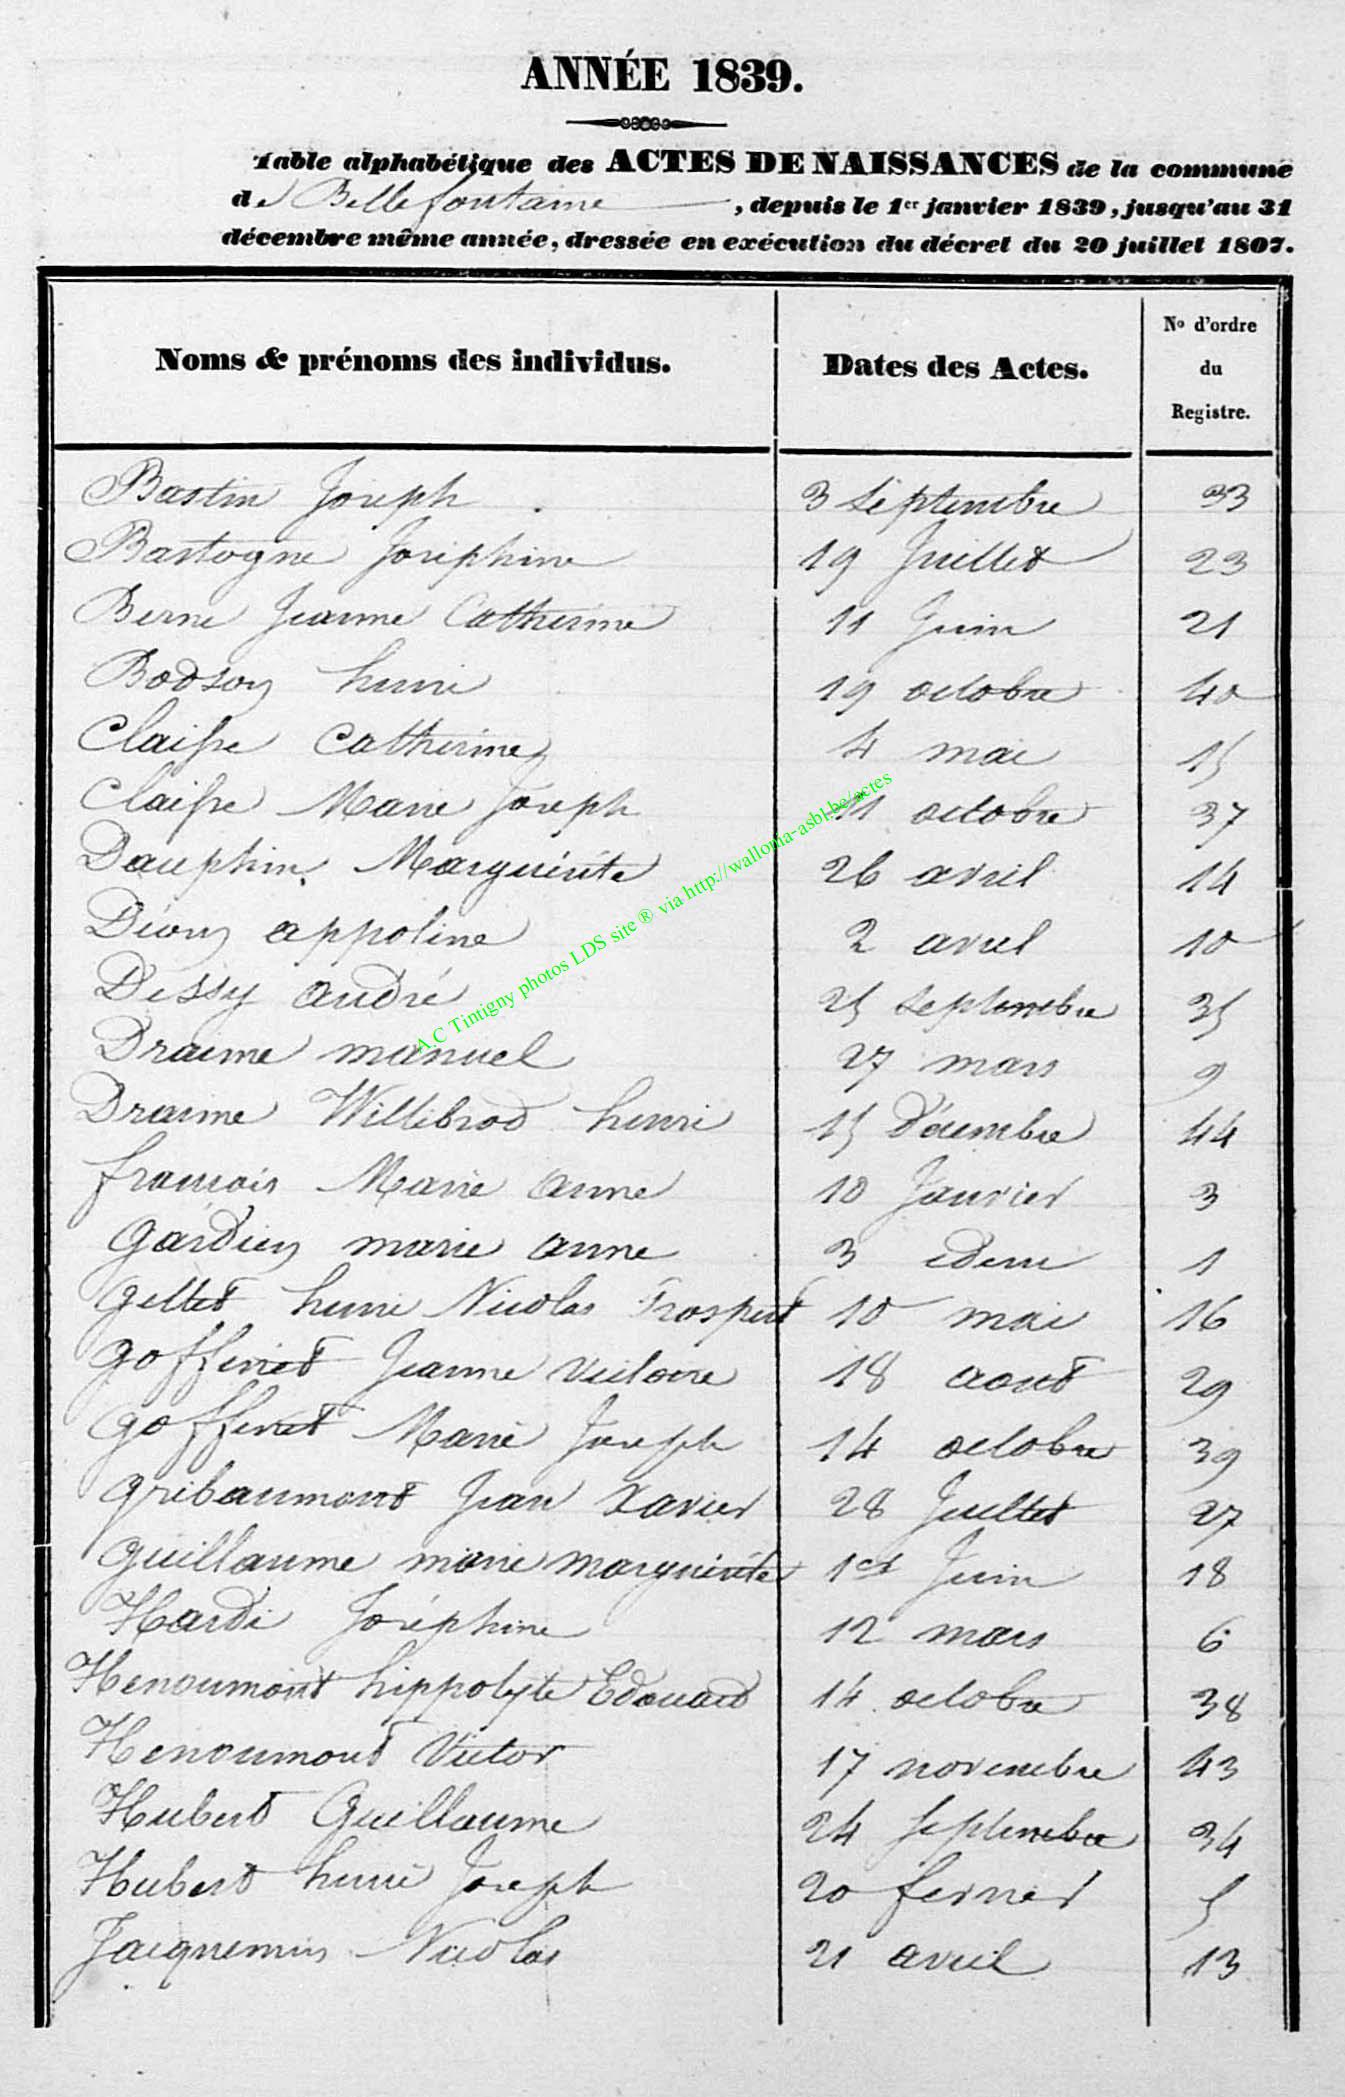 ANNÉE 1839.
Table alphabétique des ACTES DE NAISSANCES de la commune
de Bellefontaine, depuis le 1er janvier 1839, jusqu'au 31
décembre même année, dressée en exécution du décret du 20 juillet 1807.
Noms & prénoms des individus. Dates des Actes. No d'ordre du Registre.
Bastin Joseph 3 septembre 33
Bastogne Joséphine 19 Juillet 23
Berne Jeanne Catherine 11 Juin 21
Bodson henri 19 octobre 40
Claisse Catherine 4 mai 15
Claisse Marie Joseph 11 octobre 37
Dauphin Marguerite 26 avril 14
Diony appoline 2 avril 10
Dessy André 25 septembre 35
Draime manuel 27 mars 9
Draime Willibrod henri 15 Décembre 44
françois Marie anne 10 Janvier 3
Gardien marie anne 3 idem 1
Gellet henri Nicolas Prospert 10 mai 16
Goffinet Jeanne Victoire 18 aout 29
Goffinet Marie Joseph 14 octobre 39
Gribaumont Jean Xavier 28 Juillet 27
Guillaume marie marguerite 1er Juin 18
Hardi Joséphine 12 mars 6
Henoumont hippolyte Edouard 14 octobre 38
Henoumont Victor 17 novembre 43
Hubert Guillaume 24 septembre 34
Hubert henri Joseph 20 fevrier 5
Jacquemin Nicolas 21 avril 13
A.C Tintigny photos LDS site ® via http://wallonia-asbl.be/actes